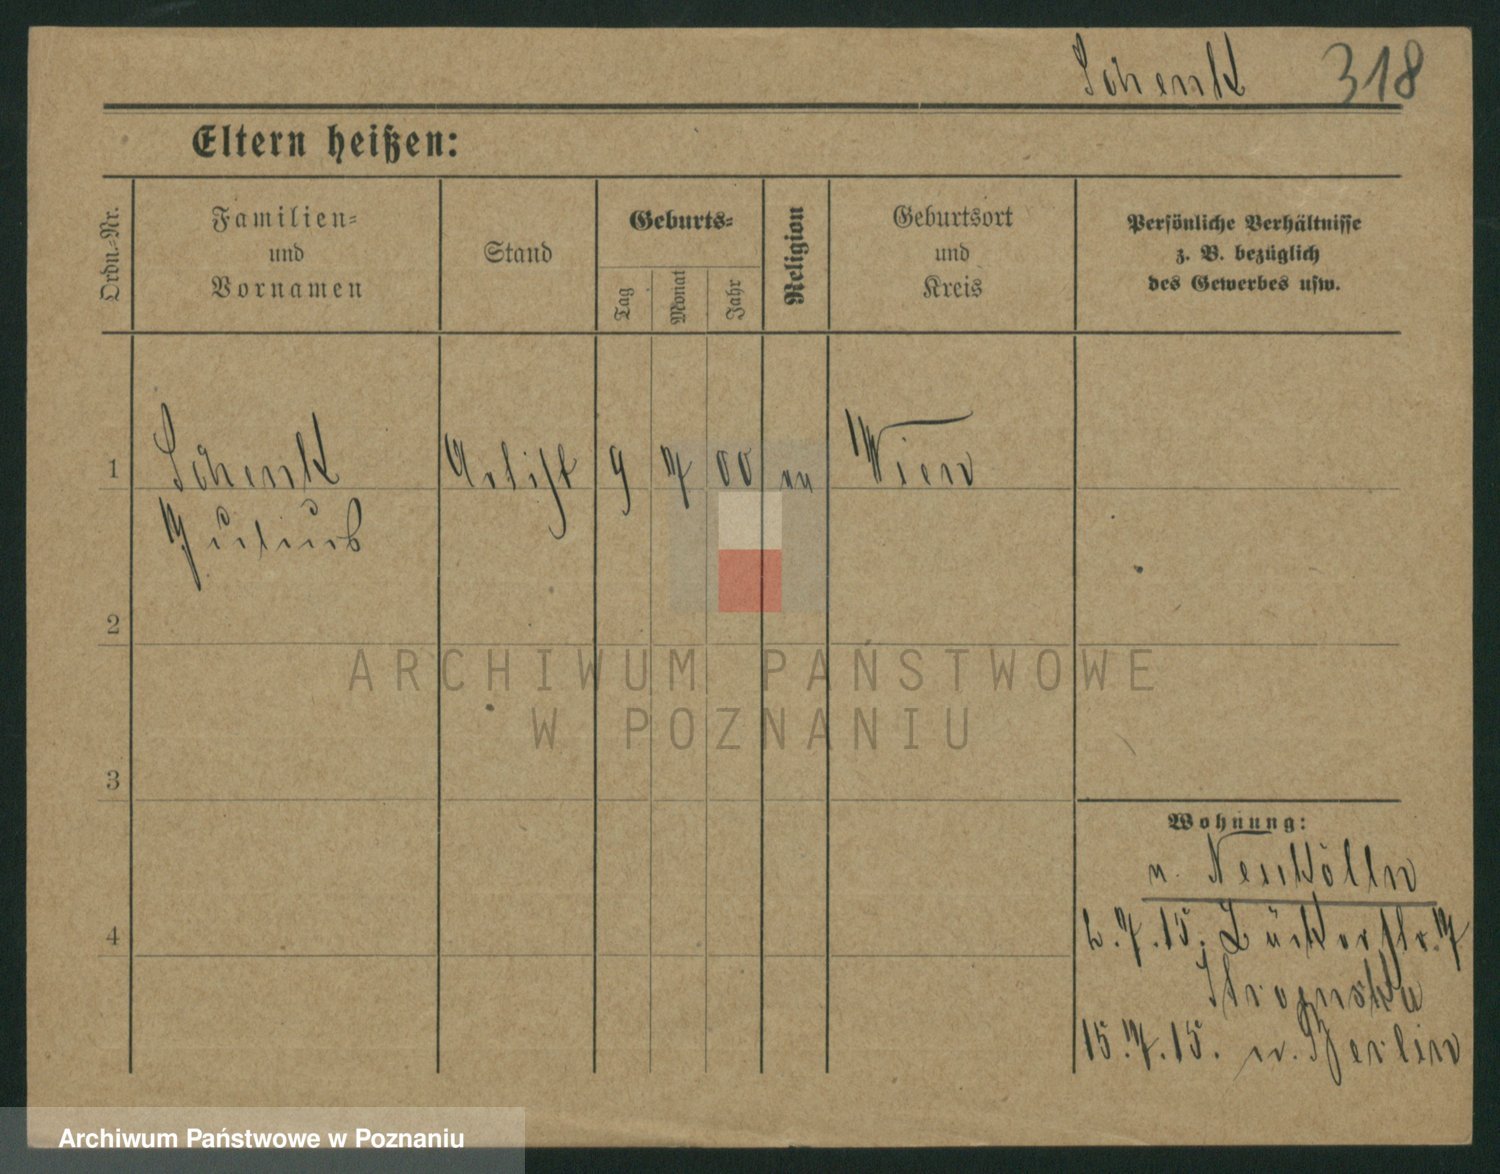 Schenk 318
Eltern heißen:
Ordn.-Nr.
Familien-
und
Vornamen
Stand
Geburts-
Tag
Monat
Jahr
Religion
Geburtsort
und
Kreis
Persönliche Verhältnisse
z. B. bezüglich
des Gewerbes usw.
1 Schenk Artist 9 7 00 Wien
Julius
2
3
4
Wohnung:
v. Neukölln
2.7.15. Bäckerstr. 7
15.7.15. n. Berlin
ARCHIWUM PAŃSTWOWE
W POZNANIU
Archiwum Państwowe w Poznaniu